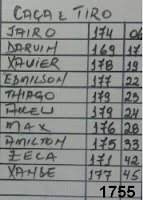 CAÇA E TIRO
JAIRO 174 06
DARUIN 169 17
XAVIER 178 19
EDMILSON 177 22
THIAGO 179 23
179 24
MAX 176 28
AMILTON 175 33
ZECA 171 42
XANDE 177 45
1755